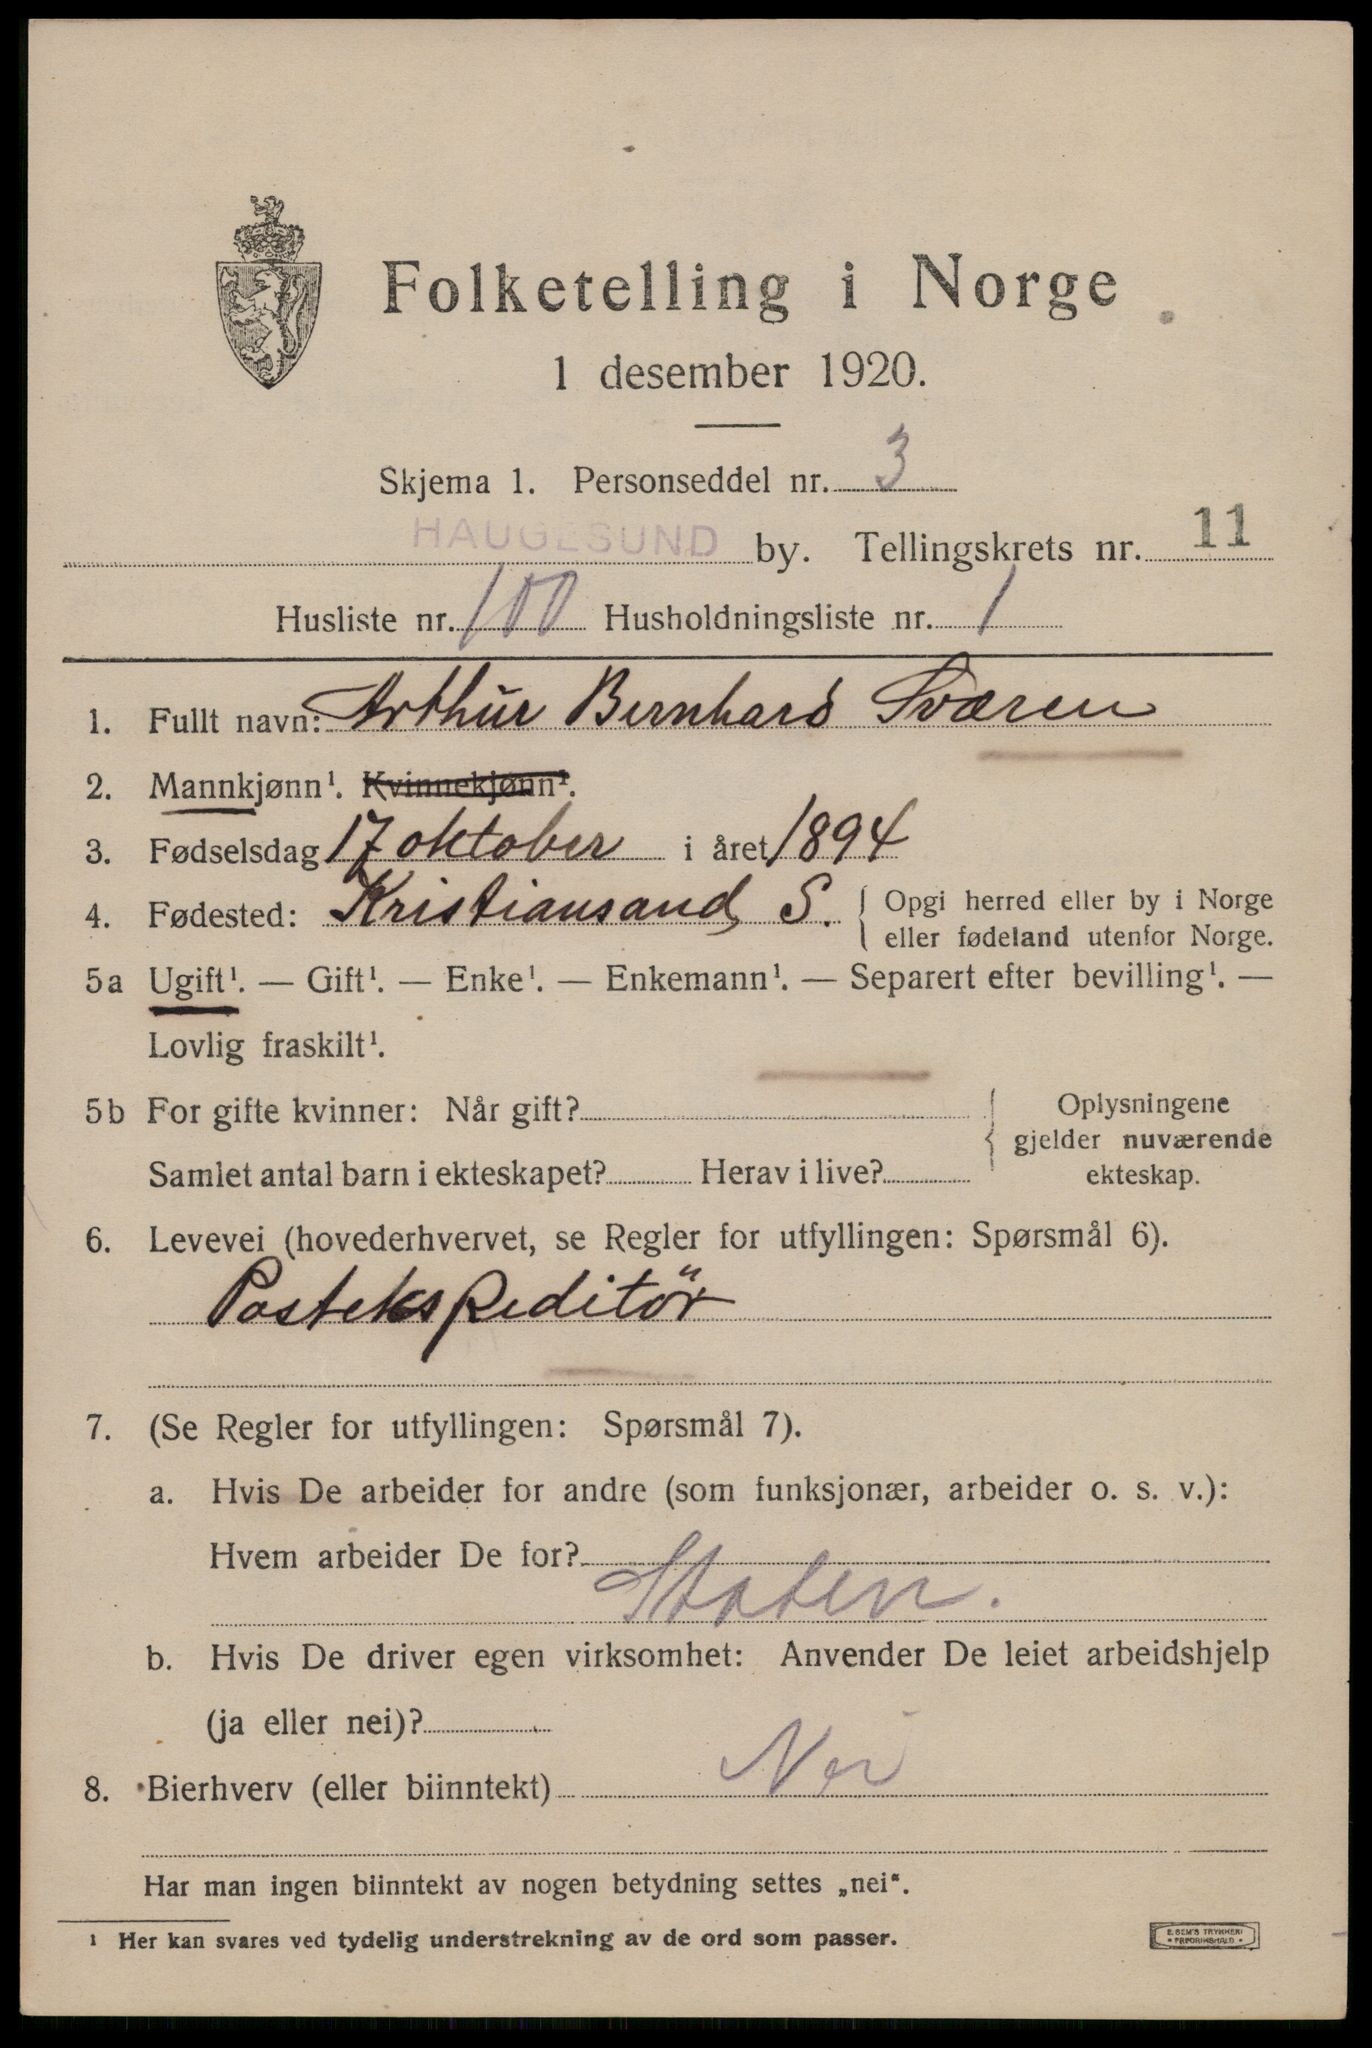 Folketelling i Norge
1 desember 1920.
Skjema 1. Personseddel nr. 3
HAUGESUND by. Tellingskrets nr. 11
Husliste nr. 100 Husholdningsliste nr. 1
1. Fullt navn: Arthur Bernhard Sværen
2. Mannkjønn¹. Kvinnekjønn¹.
3. Fødselsdag 17 oktober i året 1894
4. Fødested: Kristiansand S. { Opgi herred eller by i Norge
eller fødeland utenfor Norge.
5a Ugift¹. — Gift¹. — Enke¹. — Enkemann¹. — Separert efter bevilling¹. —
Lovlig fraskilt¹.
5b For gifte kvinner: Når gift? { Oplysningene
gjelder nuværende
Samlet antal barn i ekteskapet? Herav i live? ekteskap.
6. Levevei (hovederhvervet, se Regler for utfyllingen: Spørsmål 6).
Postekspeditör
7. (Se Regler for utfyllingen: Spørsmål 7).
a. Hvis De arbeider for andre (som funksjonær, arbeider o. s. v.):
Hvem arbeider De for?
Staten.
b. Hvis De driver egen virksomhet: Anvender De leiet arbeidshjelp
(ja eller nei)?
8. Bierhverv (eller biinntekt) Nei
Har man ingen biinntekt av nogen betydning settes „nei“.
¹ Her kan svares ved tydelig understrekning av de ord som passer.
E. SEM'S TRYKKERI
• FREDRIKSHALD •